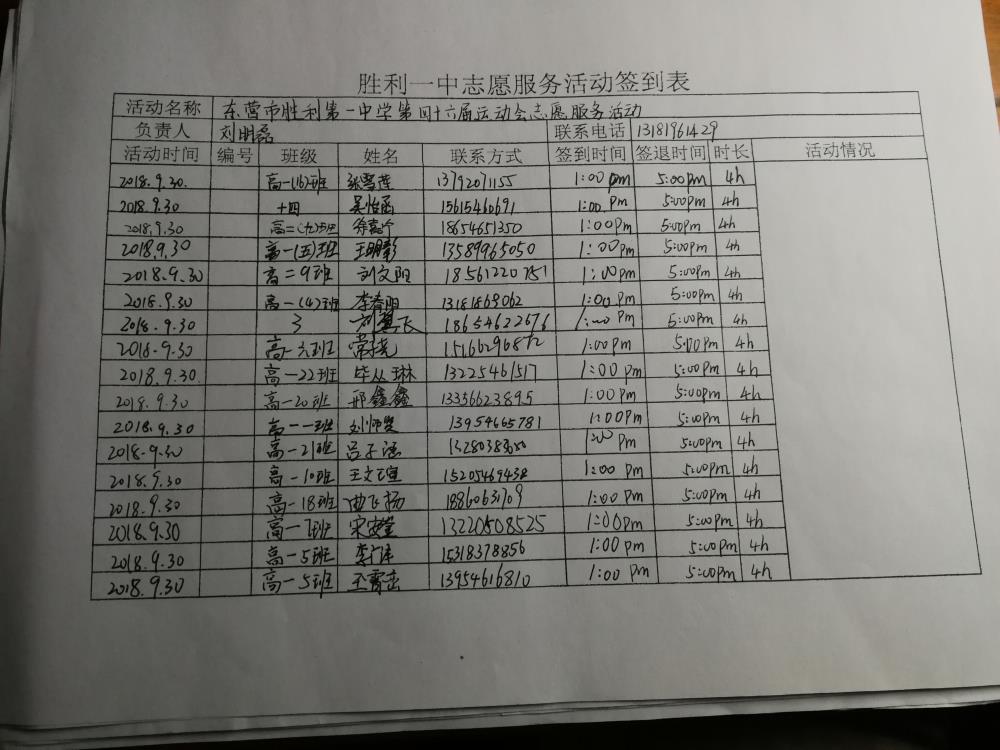 胜利一中志愿服务活动签到表
活动名称 东营市胜利第一中学第四十六届运动会志愿服务活动
负责人 刘明磊 联系电话 13181961429
活动时间 编号 班级 姓名 联系方式 签到时间 签退时间 时长 活动情况
2018.9.30. 高一(16)班 张雪莲 13792071155 1:00 pm 5:00pm 4h
2018.9.30 十四 吴怡函 15615460691 1:00 pm 5:00pm 4h
2018.9.30 高二(九)班 18654651350 1:00pm 5:00pm 4h
2018.9.30 高一(五)班 王明彰 13589965050 1:00pm 5:00pm 4h
2018.9.30 高二9班 刘文阳 18561220751 1:00pm 5:00pm 4h
2018.9.30 高一(4)班 李春明 13181869062 1:00pm 5:00pm 4h
2018.9.30 3 刘翼飞 18654622676 1:00 pm 5:00pm 4h
2018.9.30 高一六班 常晓 15166296872 1:00pm 5:00pm 4h
2018.9.30. 高一22班 毕丛琳 13225461517 1:00 pm 5:00pm 4h
2018.9.30 高一20班 邢鑫鑫 13336623895 1:00 pm 5:00pm 4h
2018.9.30 高一一班 13954665781 1:00pm 5:00pm 4h
2018.9.30 高一21班 吕子涵 1:00 pm 5:00pm 4h
2018.9.30 高一10班 15205469438 1:00 pm 5:00pm 4h
2018.9.30 高一18班 曲飞扬 1:00pm 5:00pm 4h
2018.9.30 高一7班 13220508525 1:00pm 5:00pm 4h
2018.9.30 高一5班 15318378856 1:00pm 5:00pm 4h
2018.9.30 高一5班 13954616810 1:00 pm 5:00pm 4h